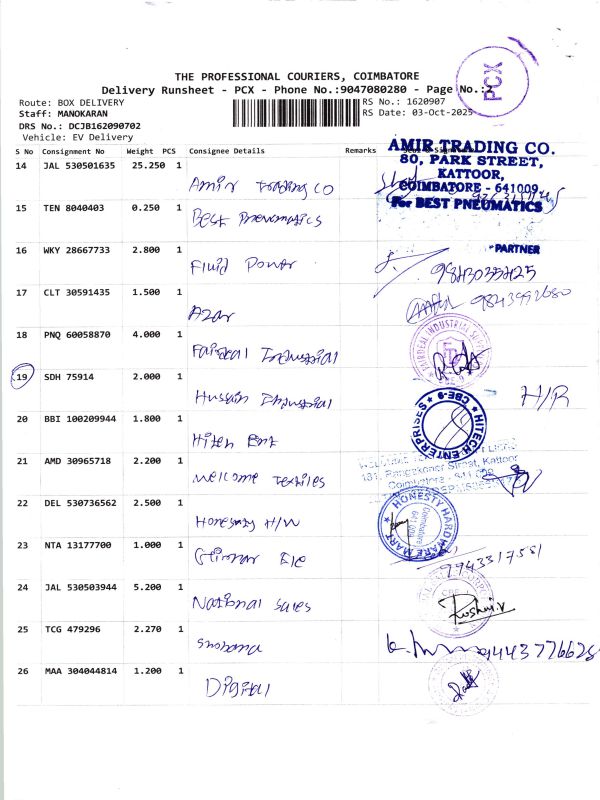 PCX
THE PROFESSIONAL COURIERS, COIMBATORE
Delivery Runsheet - PCX - Phone No.:9047080280 - Page No.:2
Route: BOX DELIVERY
RS No.: 1620907
Staff: MANOKARAN
RS Date: 03-Oct-2025
DRS No.: DCJB162090702
Vehicle: EV Delivery
S No Consignment No Weight PCS Consignee Details Remarks
AMIR TRADING CO.
80, PARK STREET,
KATTOOR,
COIMBATORE - 641009
14 JAL 530501635 25.250 1 Amir Trading CO
For BEST PNEUMATICS
15 TEN 8040403 0.250 1 Best Pneumatics
PARTNER
16 WKY 28667733 2.800 1 Fluid Power
17 CLT 30591435 1.500 1 Azar
18 PNQ 60058870 4.000 1 Fairdeal Industrial
19 SDH 75914 2.000 1 Hussain Industrial
H/R
20 BBI 100209944 1.800 1 Hitech Ent
HITECH ENTERPRISES CBE-9
21 AMD 30965718 2.200 1 Welcome Textiles
22 DEL 530736562 2.500 1 Honesty H/W
HONESTY HARDWARE MART
Coimbatore
641 009
23 NTA 13177700 1.000 1 Girnar Ele
9943317581
24 JAL 530503944 5.200 1 National Sales
25 TCG 479296 2.270 1
26 MAA 304044814 1.200 1 Digital